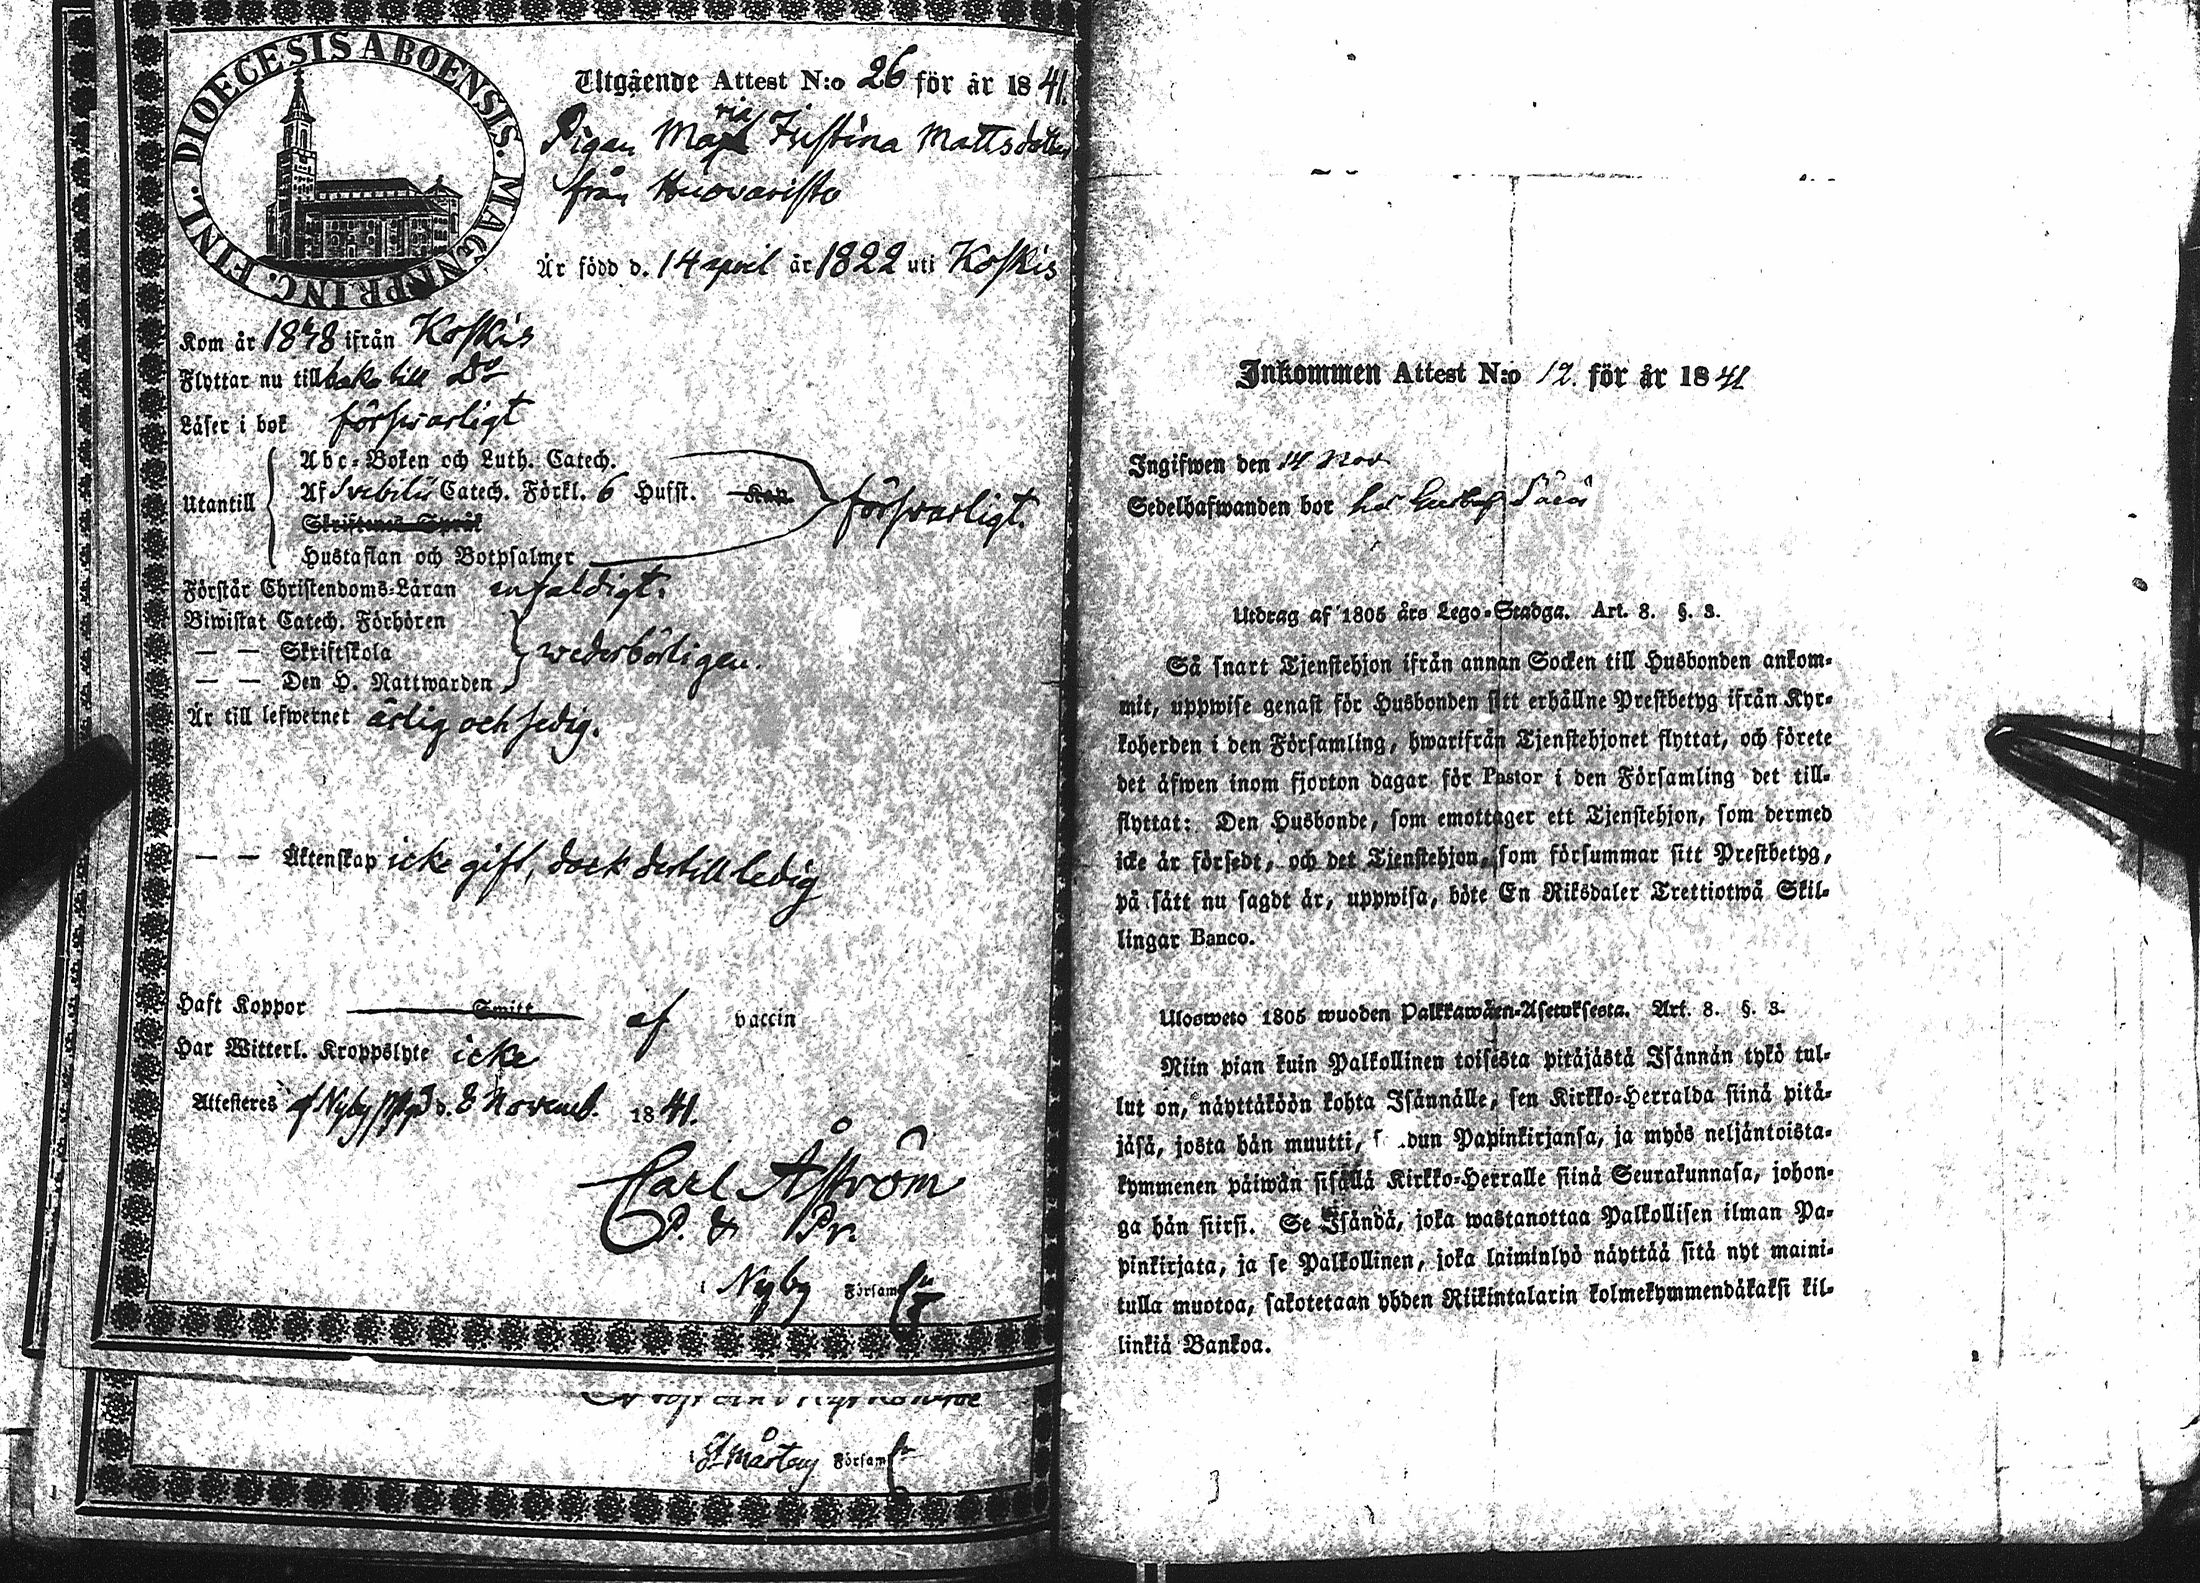 DIOECESIS ABOENSIS. MAGNI PRINC. FINL.
Utgående Attest N:o 26 för år 1841.
Pigan Maria Justina Mattsdotter
från
Är född d. 14 april år 1822 uti Koskis
Kom år 18 8 ifrån Koskis
Flyttar nu till baka till Do
Läser i bok försvarligt
Utantill
Abc-Boken och Luth. Catech.
Af Svebilii Catech. Förkl. 6 Hufst. Kap.
Skriftenes Språk
Hustaflan och Botpsalmer
försvarligt.
Förstår Christendoms-Läran enfaldigt.
Biwistat Catech. Förhören
— — Skriftskola
— — Den H. Nattwarden
wederbörligen.
Är till lefwernet ärlig och sedig.
— — Äktenskap icke gift, dock dertill ledig
Haft Koppor Smitt af vaccin
Har Witterl. Kroppslyte icke
Attesteras af Nyby d. 8 Novemb. 1841.
Carl Åström
P. & Pr.
i Nyby Församl
i St Mårtens Församl
Inkommen Attest N:o 12. för år 1841
Ingifwen den 14 Nov
Sedelhafwanden bor hos Gustaf
Utdrag af 1805 års Lego-Stadga. Art. 8. §. 3.
Så snart Tjenstehjon ifrån annan Socken till Husbonden ankom-
mit, uppwise genast för Husbonden sitt erhållne Prestbetyg ifrån Kyr-
koherden i den Församling, hwarifrån Tjenstehjonet flyttat, och förete
det äfwen inom fjorton dagar för Pastor i den Församling det till-
flyttat: Den Husbonde, som emottager ett Tjenstehjon, som dermed
icke är försedt, och det Tjenstehjon, som försummar sitt Prestbetyg,
på sätt nu sagdt är, uppwisa, böte En Riksdaler Trettiotwå Skil-
lingar Banco.
Ulosweto 1805 wuoden Palkkawäen-Asetuksesta. Art. 8. §. 3.
Niin pian kuin Palkollinen toisesta pitäjästä Isännän tykö tul-
lut on, näyttäköön kohta Isännälle, sen Kirkko-Herralda siinä pitä-
jäsä, josta hän muutti, s dun Papinkirjansa, ja myös neljäntoista-
kymmenen päiwän sisällä Kirkko-Herralle siinä Seurakunnasa, johon-
ga hän siirsi. Se Isändä, joka wastanottaa Palkollisen ilman Pa-
pinkirjata, ja se Palkollinen, joka laiminlyö näyttää sitä nyt maini-
tulla muotoa, sakotetaan yhden Riikintalarin kolmekymmendäkaksi kil-
linkiä Bankoa.